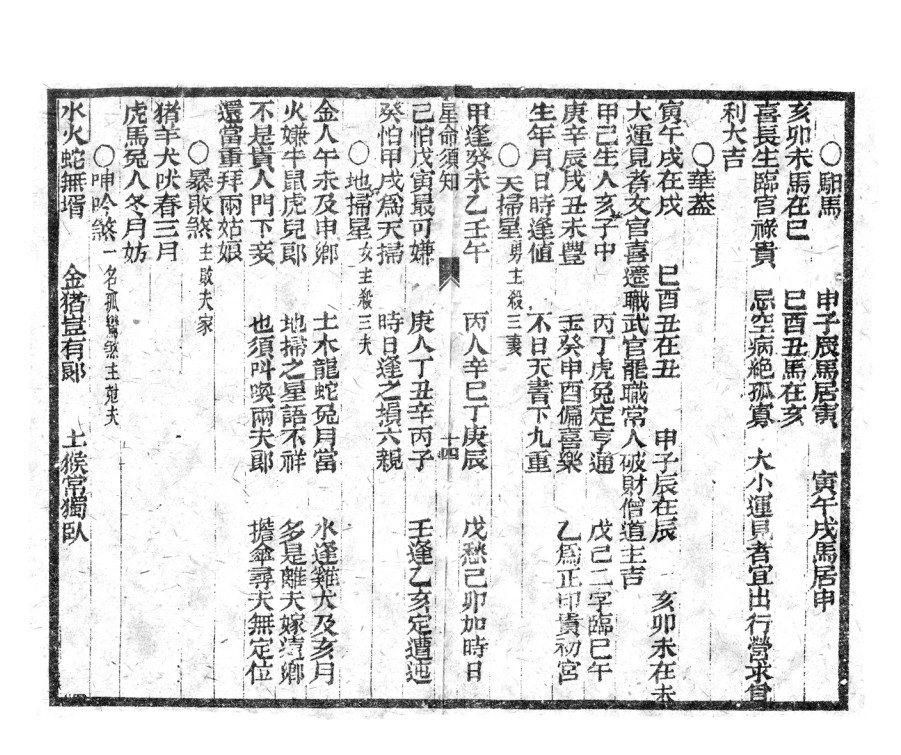 〇馹馬　申子辰馬居寅　寅午戌馬居申
亥卯未馬在巳　巳酉丑馬在亥
喜長生臨官祿貴　忌空病絕孤寡　大小運見者宜出行營求
利大吉
〇華葢
寅午戌在戌　巳酉丑在丑　申子辰在辰　亥卯未在未
大運見者文官喜遷職武官罷職常人破財僧道主吉
甲己生人亥子中　丙丁虎兔定亨通　戊己二字臨巳午
庚辛辰戌丑未豐　壬癸申酉偏喜樂　乙爲正印貴初宮
生年月日時逢値　不日天書下九重
〇天掃星男主殺三妻
甲逢癸未乙壬午　丙人辛巳丁庚辰　戊愁己卯加時日
星命須知　十四
己怕戊寅最可嫌　庚人丁丑辛丙子　壬逢乙亥定遭迍
癸怕甲戌爲天掃　時日逢之損六親
〇地掃星女主殺三夫
金人午未及申鄉　土木龍蛇兔月當　水逢雞犬及亥月
火嫌牛鼠虎兒郞　地掃之星語不祥　多是離夫嫁遠鄉
不是貴人門下妾　也須叫喚兩夫郞　擔傘尋夫無定位
還當重拜兩姑娘
〇暴敗煞主敗夫家
猪羊犬吠春三月
虎馬兔人冬月妨
〇呻吟煞一名孤鸞煞主尅夫
水火蛇無壻　金猪豈有郞　土猴常獨臥